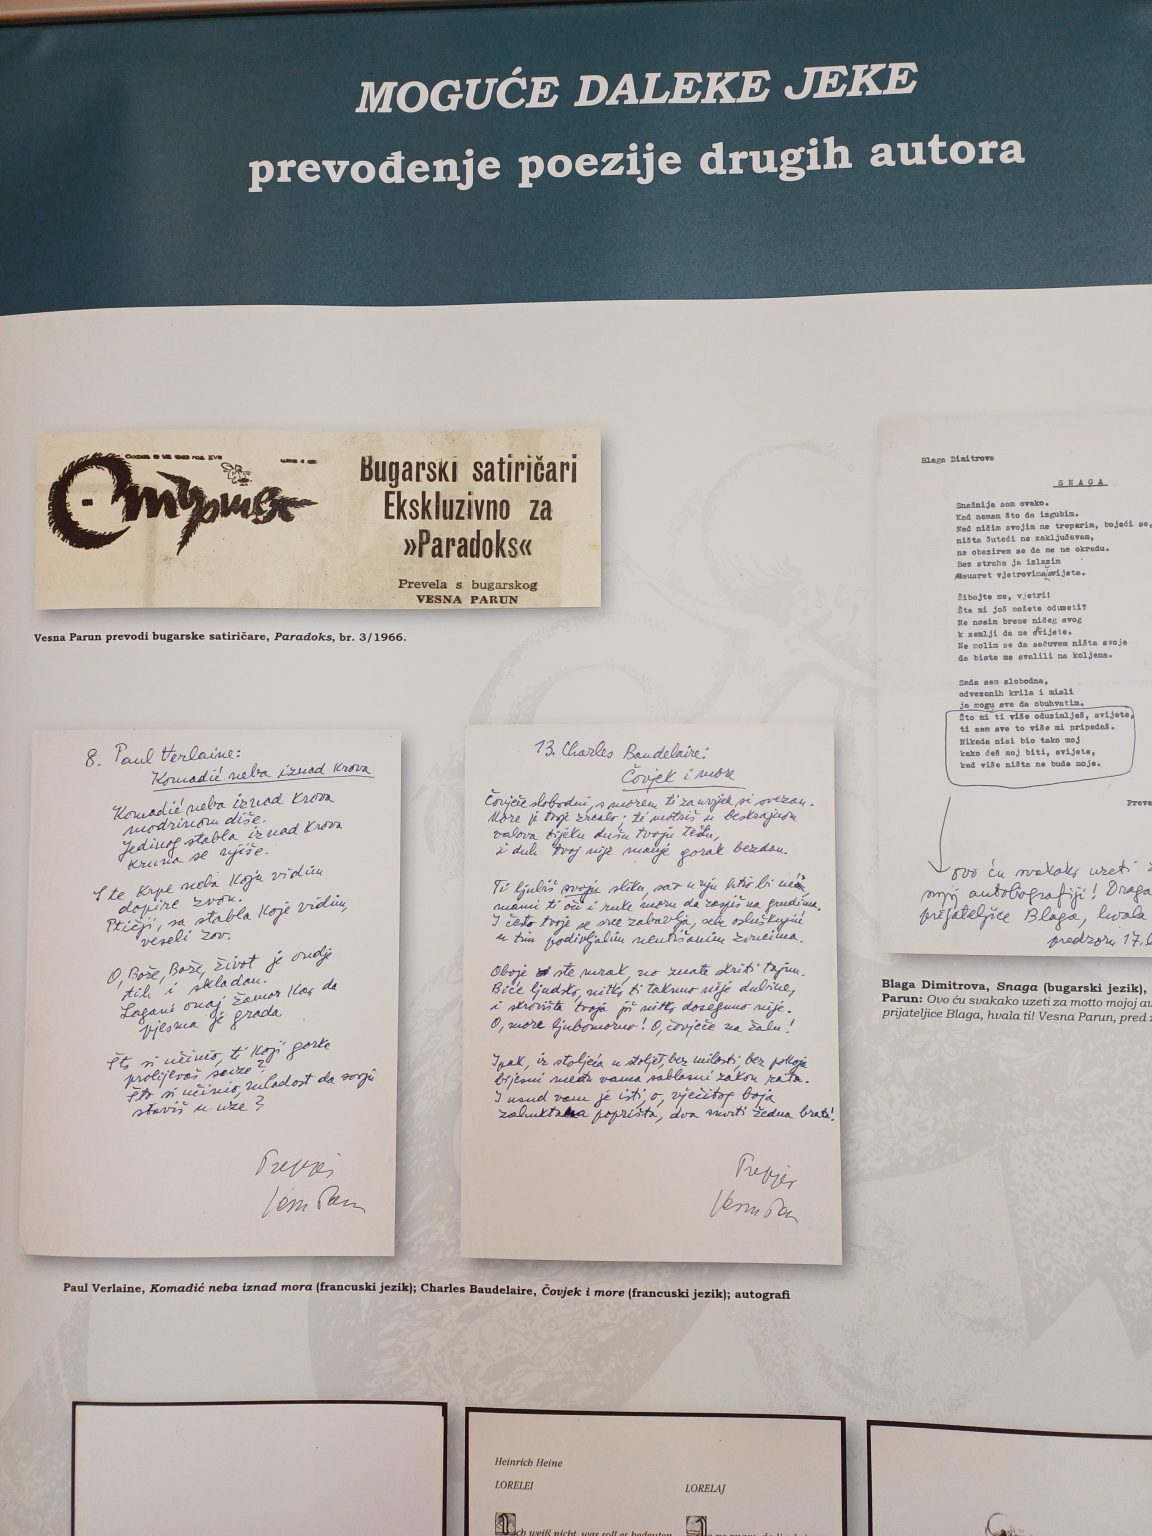 MOGUĆE DALEKE JEKE
prevođenje poezije drugih autora
Bugarski satiričari
Ekskluzivno za
»Paradoks«
Prevela s bugarskog
VESNA PARUN
Vesna Parun prevodi bugarske satiričare, Paradoks, br. 3/1966.
Blaga Dimitrova
SNAGA
Snažnija sam ovako.
Kad nemam što da izgubim.
Nad ničim svojim ne treperim, bojeći se,
ništa žuteći ne zaključavam,
ne obazirem se da me ne okradu.
Bez straha ja izlazim
ususret vjetrovima svijeta.
Šibajte me, vjetri!
Šta mi još možete oduzeti?
Ne nosim breme ničeg svog
k zemlji da me svijete.
Ne molim se da sačuvam ništa svoje
da biste me svalili na koljena.
Sada sam slobodna,
odvezanih krila i misli
ja mogu sve da obuhvatim.
Što mi ti više oduzimlješ, svijete,
ti sam sve to više mi pripadaš.
Nikada nisi bio tako moj
kako ćeš moj biti, svijete,
kad više ništa ne bude moje.
Preve
ovo ću svakako uzeti z
mojoj autobiografiji! Draga
prijateljice Blaga, hvala
predzoru 17.
Blaga Dimitrova, Snaga (bugarski jezik),
Parun: Ovo ću svakako uzeti za motto mojoj au
prijateljice Blaga, hvala ti! Vesna Parun, pred
8. Paul Verlaine:
Komadić neba iznad krova
Komadić neba iznad krova
modrinom diše.
Jedinog stabla iznad krova
kruna se njiše.
S te krpe neba koju vidim
dopire zvon.
Ptičji, sa stabla koje vidim,
veseli zov.
O, Bože, Bože, život je ondje
tih i skladan.
Lagani onaj žamor kao da
pjesma je grada
Što si učinio, ti koji gorke
prolijevaš suze?
Što si učinio, mladost da svoju
staviš u uze?
Prepjev
Vesna Parun
13. Charles Baudelaire:
Čovjek i more
Čovječe slobodni, s morem ti zauvjek si svezan.
More je tvoje zrcalo; ti motriš u beskrajnom
valova tijeku dušu tvoju
i duh tvoj nije manje gorak bezdan.
Ti ljubiš svoju sliku, sav u nju htio bi
mami ti oči i ruke moru da zaspiš na grudima.
I često tvoje se srce zabavlja, sebe osluškujuć
u tim podivljalim neutišanim zvucima.
Oboje ste mrak, no znate kriti tajnu.
Biće ljudsko, nitko ti taknuo nije dubine,
i skrovišta tvoja još nitko dosegnuo nije.
O, more ljubomorno! O, čovječe na žalu!
Ipak, iz stoljeća u stoljeće, bez milosti, bez pokoja
bijesni među vama sablasni zakon rata.
I usud vam je isti, o, vječitog boja
poprišta, dva smrti žedna brata!
Prepjev
Vesna Parun
Paul Verlaine, Komadić neba iznad mora (francuski jezik); Charles Baudelaire, Čovjek i more (francuski jezik); autografi
Heinrich Heine
LORELEI
LORELAJ
Ich weiß nicht, was soll es bedeuten